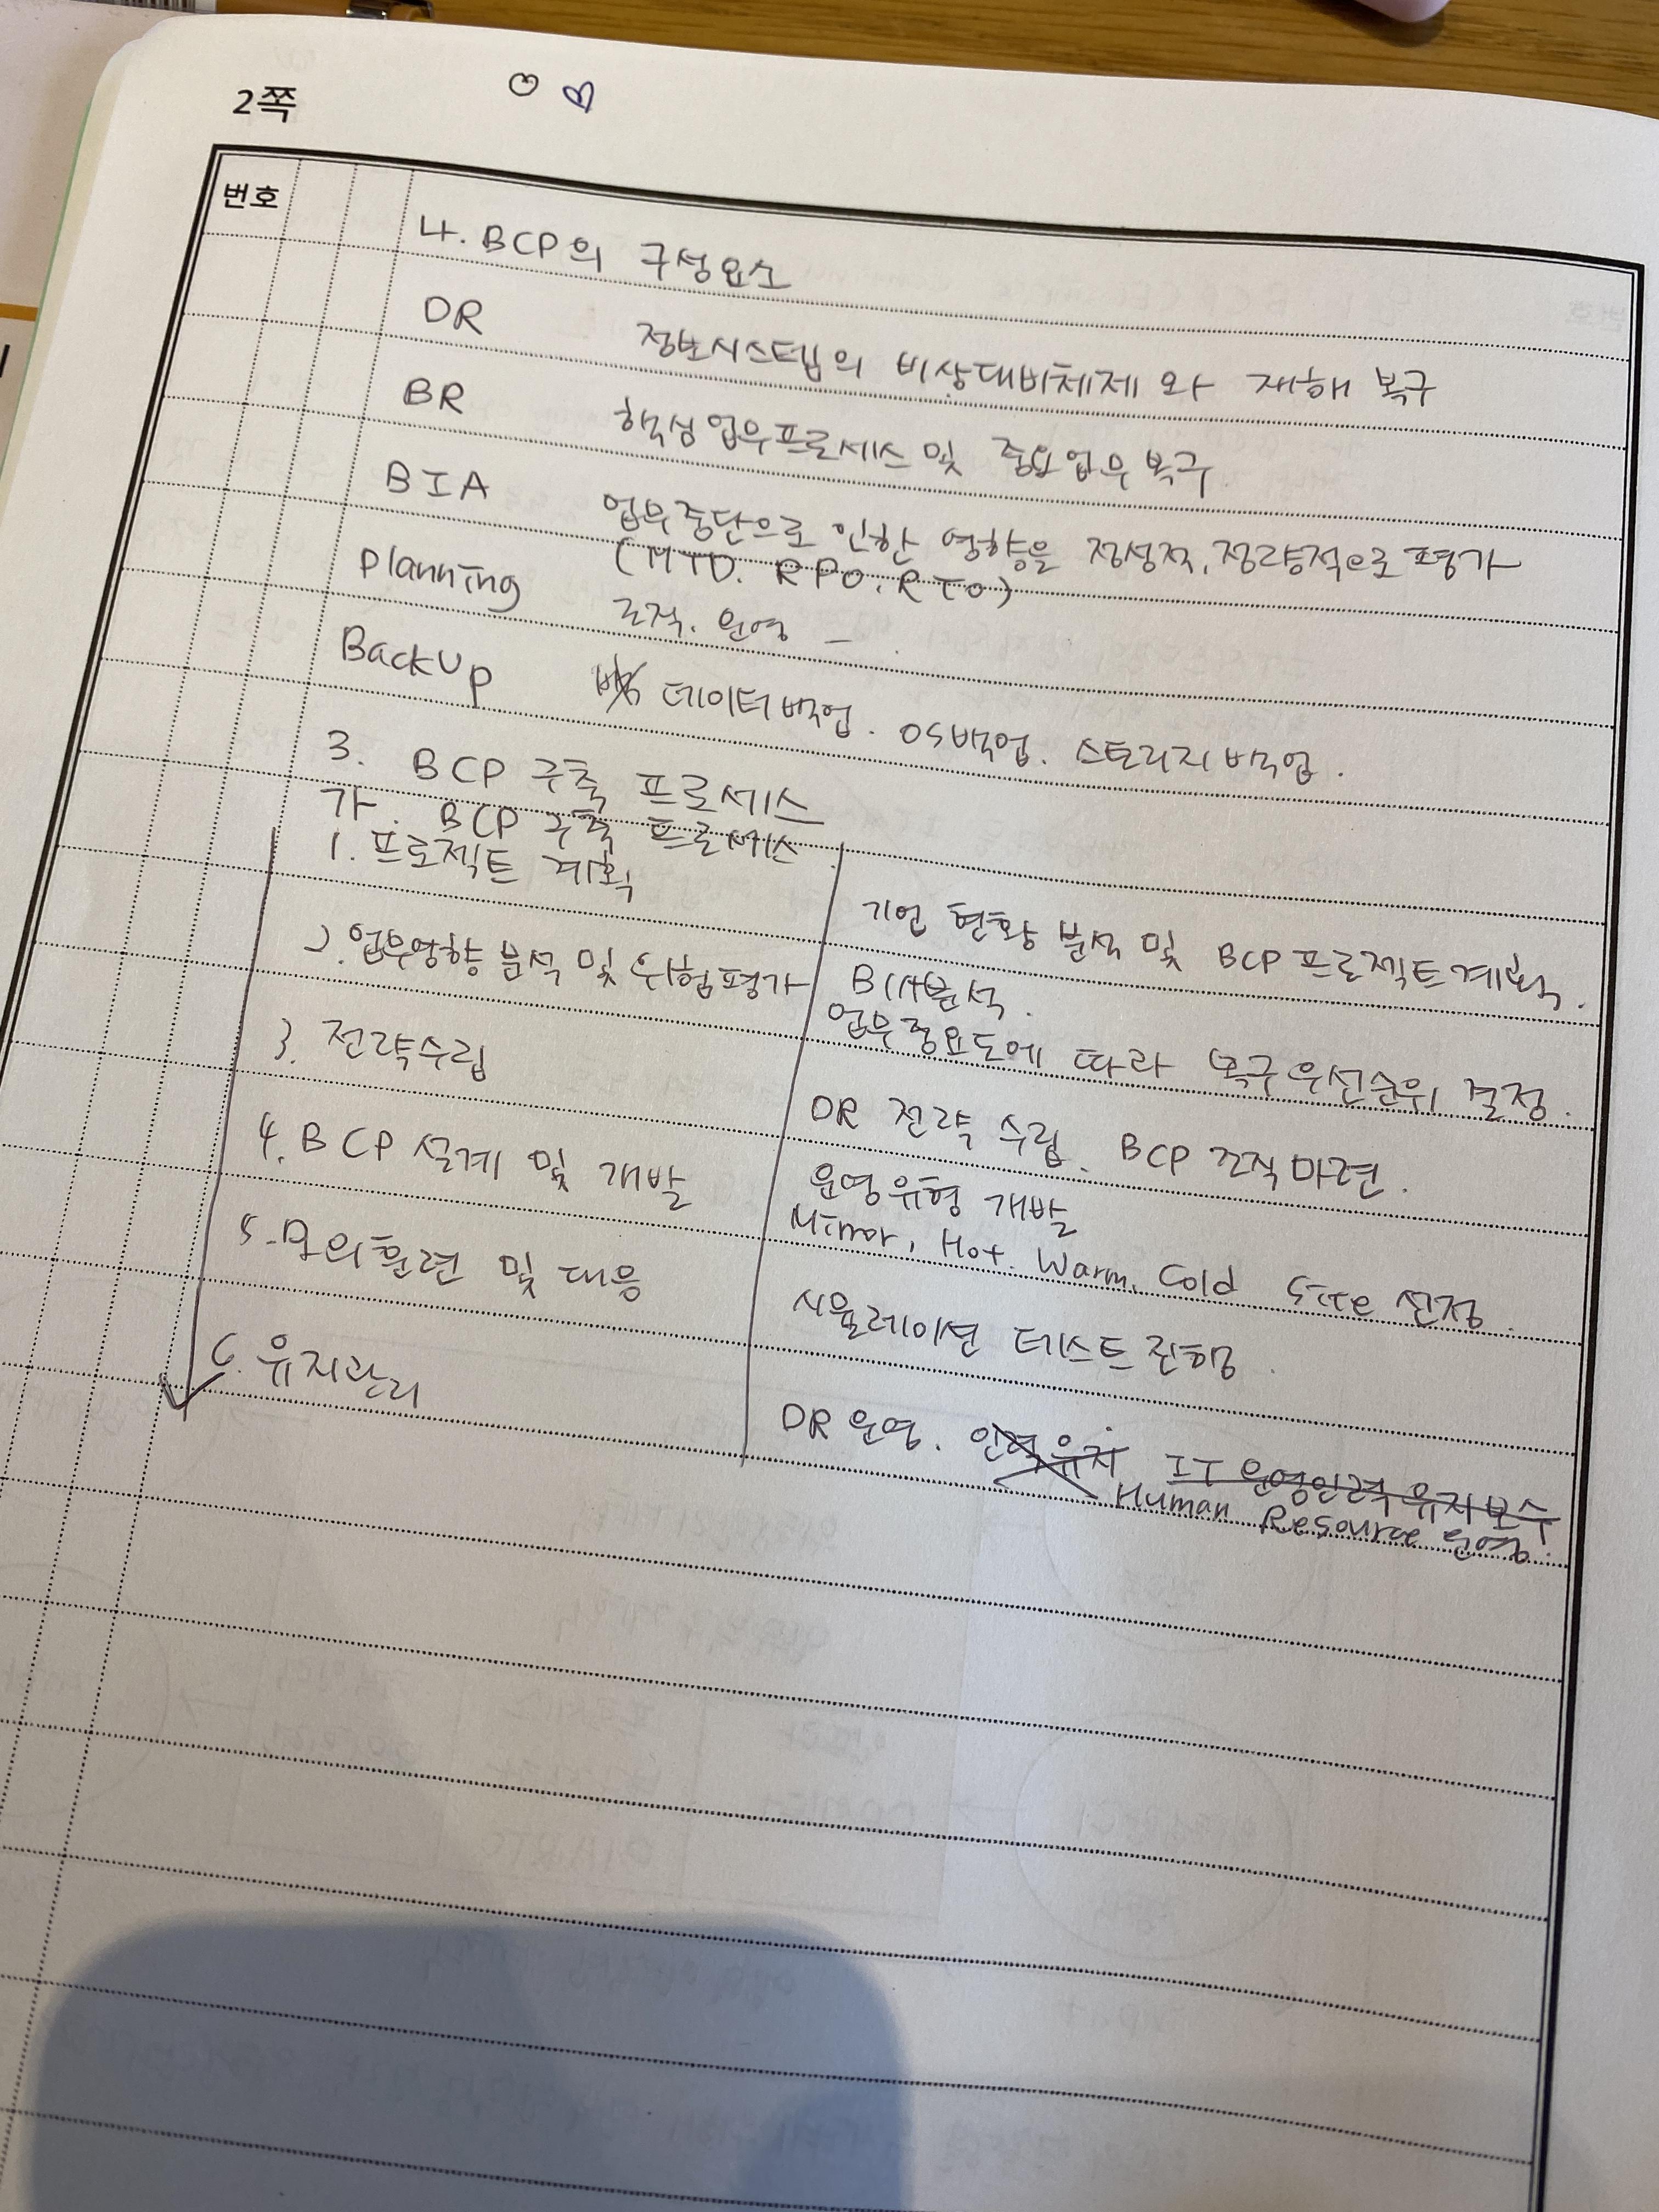 2쪽
번호
나. BCP의 구성요소
DR 정보시스템의 비상대비체제와 재해 복구
BR 핵심업무프로세스 및 중요업무복구
BIA 업무중단으로 인한 영향을 정성적, 정량적으로 평가
(MTD. RPO, RTO)
Planning 조직. 운영 -
BackUp 데이터백업. OS백업. 스토리지 백업.
3. BCP 구축 프로세스
가. BCP 구축 프로세스
1. 프로젝트 계획 기업 현황 분석 및 BCP 프로젝트 계획.
2. 업무영향 분석 및 위험평가 BIA분석.
업무중요도에 따라 복구우선순위 결정.
3. 전략수립 DR 전략 수립. BCP 조직 마련.
4. BCP 설계 및 개발 운영유형 개발
Mirror, Hot. Warm, Cold Site 선정.
5. 모의훈련 및 대응 시뮬레이션 테스트 진행.
6. 유지관리 DR 운영. 인력유지 IT 운영인력 유지보수
Human Resource 운영.